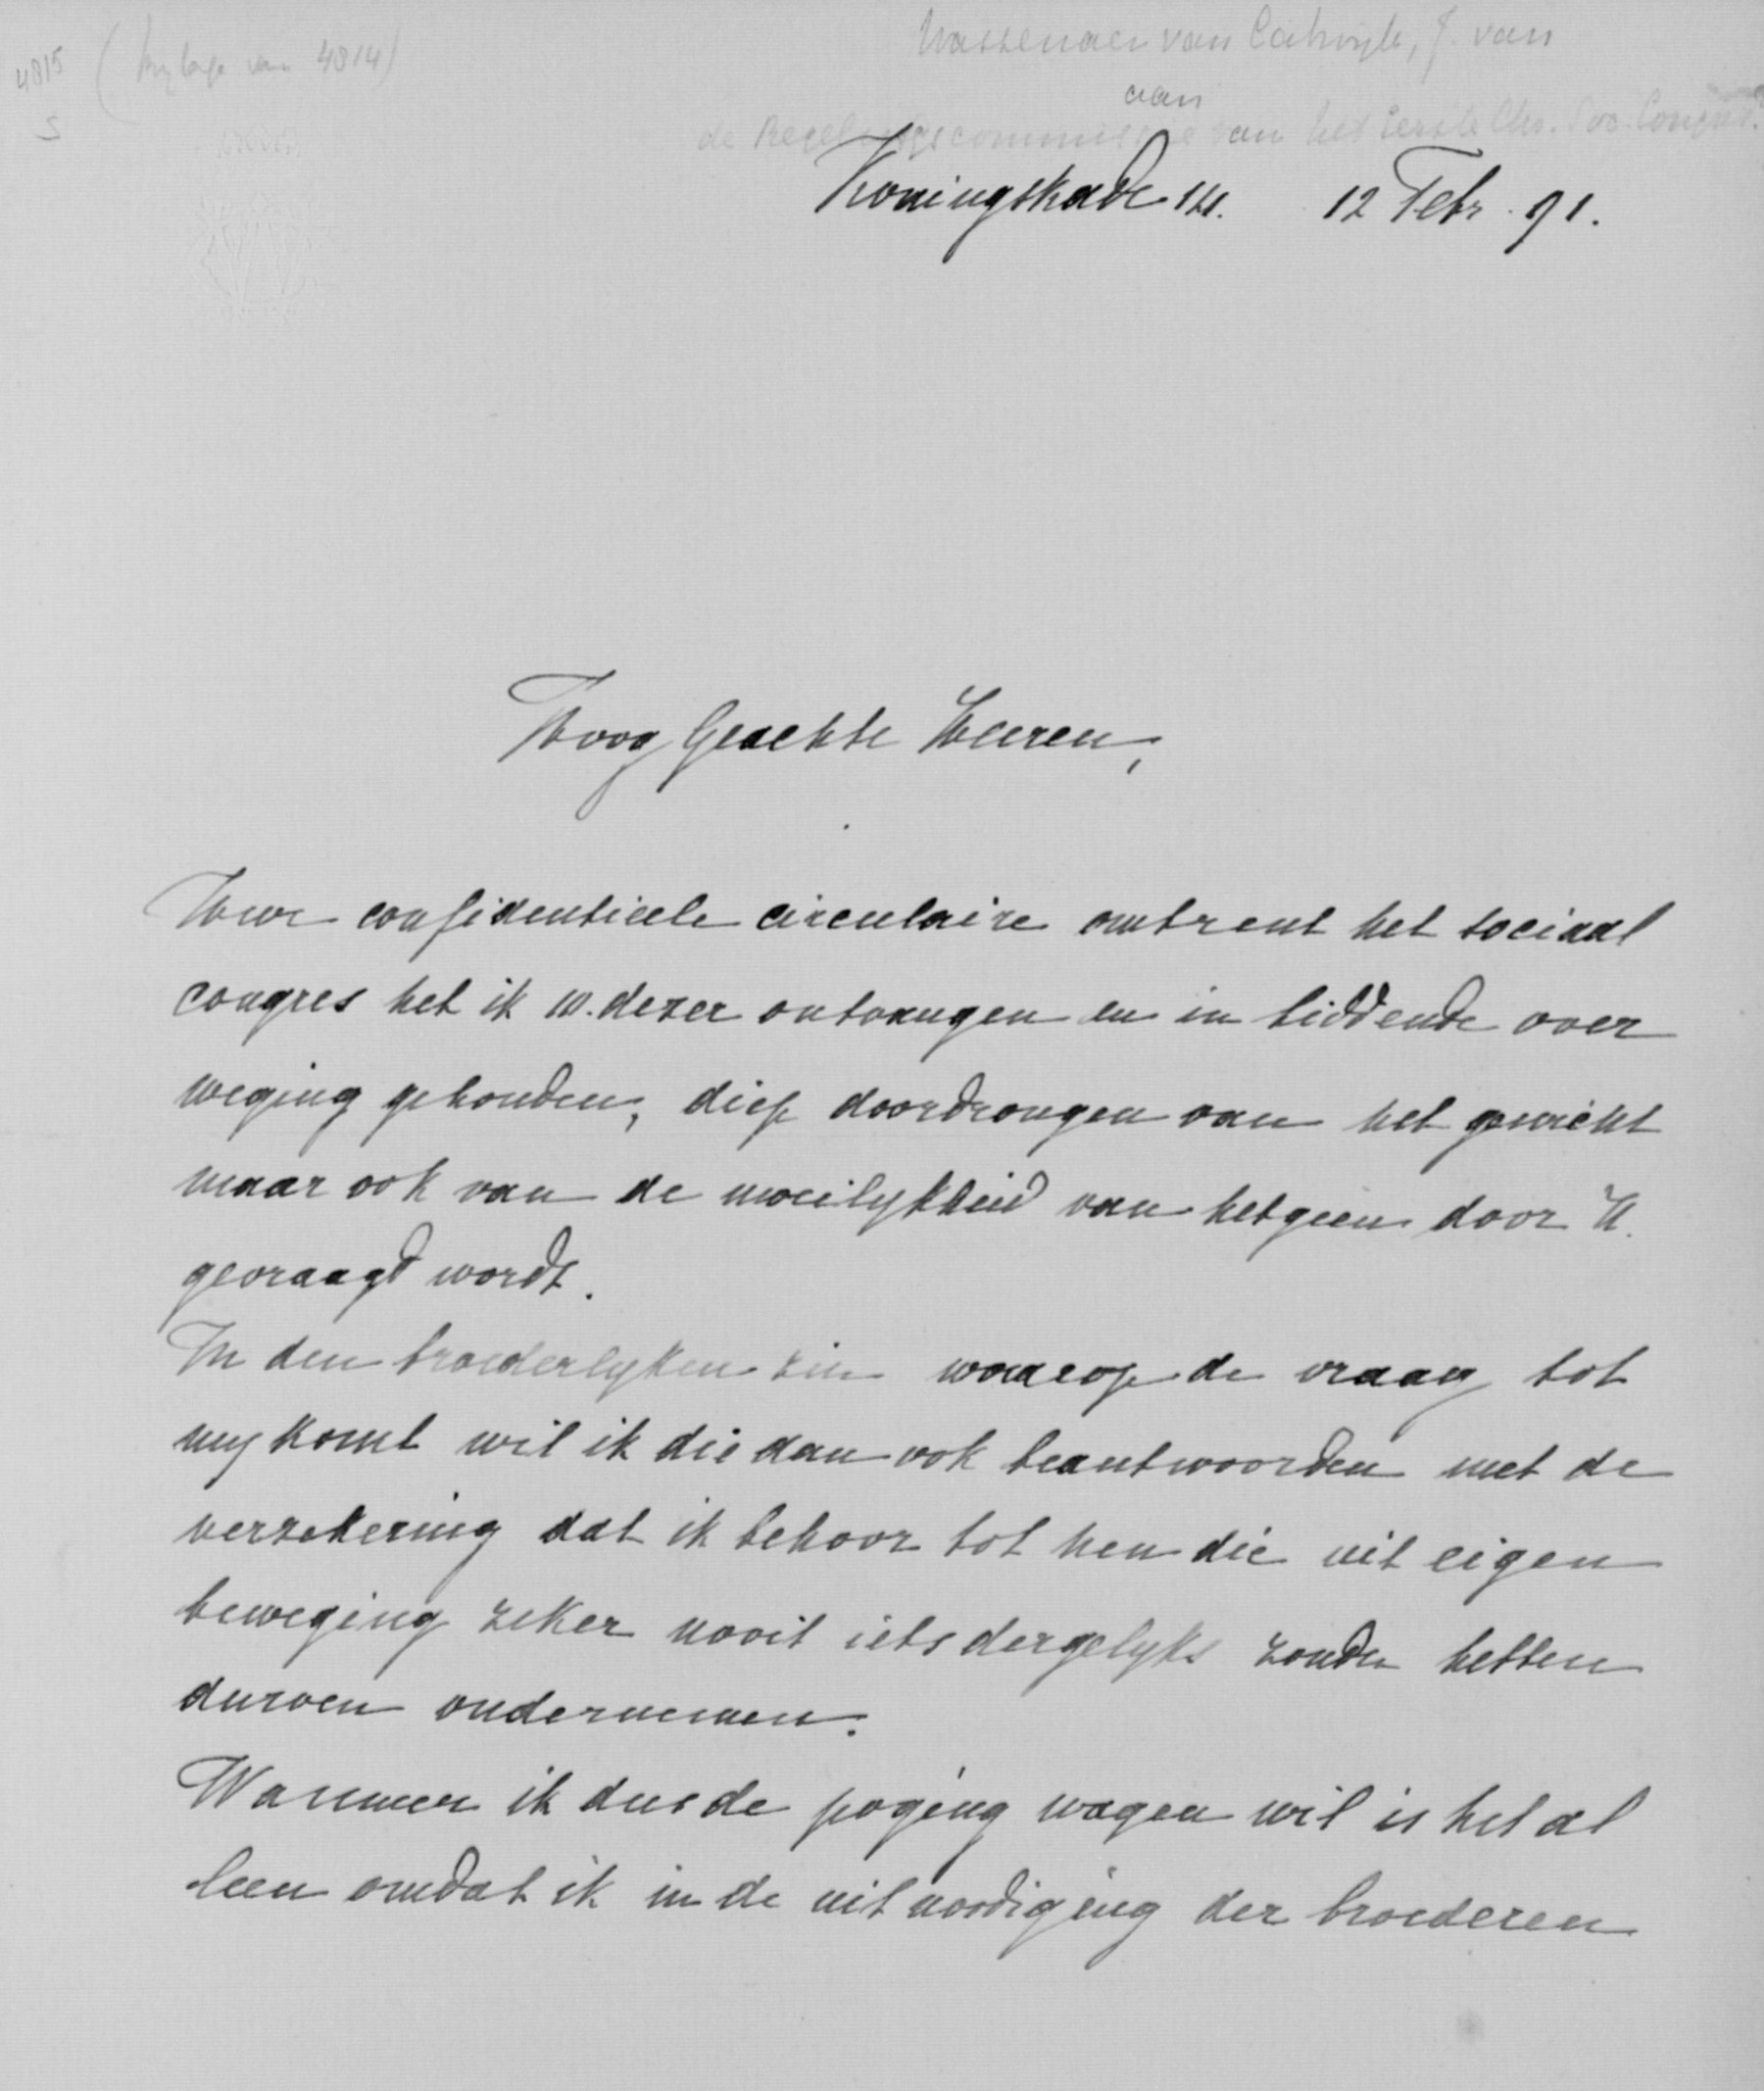 4815 (bylage van 4814)
S
Wassenaer van Catwijk, J. van
aan
de Regelingscommissie van het Eerste Chr. Soc. Congres.
Koningskade 14. 12 Febr. 91.
Hoog Geachte Heeren,
Uwe confidentieele circulaire omtrent het sociaal
congres heb ik 10. dezer ontvangen en in biddende over
weging gehouden, diep doordrongen van het gewicht
maar ook van de moeilykheid van hetgeen door U.
gevraagd wordt.
In den broederlyken zin waarop de vraag tot
my komt wil ik die dan ook beantwoorden met de
verzekering dat ik behoor tot hen die uit eigen
beweging zeker nooit iets dergelyks zouden hebben
durven ondernemen.
Wanneer ik dus de poging wagen wil is het al
leen omdat ik in de uitnoodiging der broederen